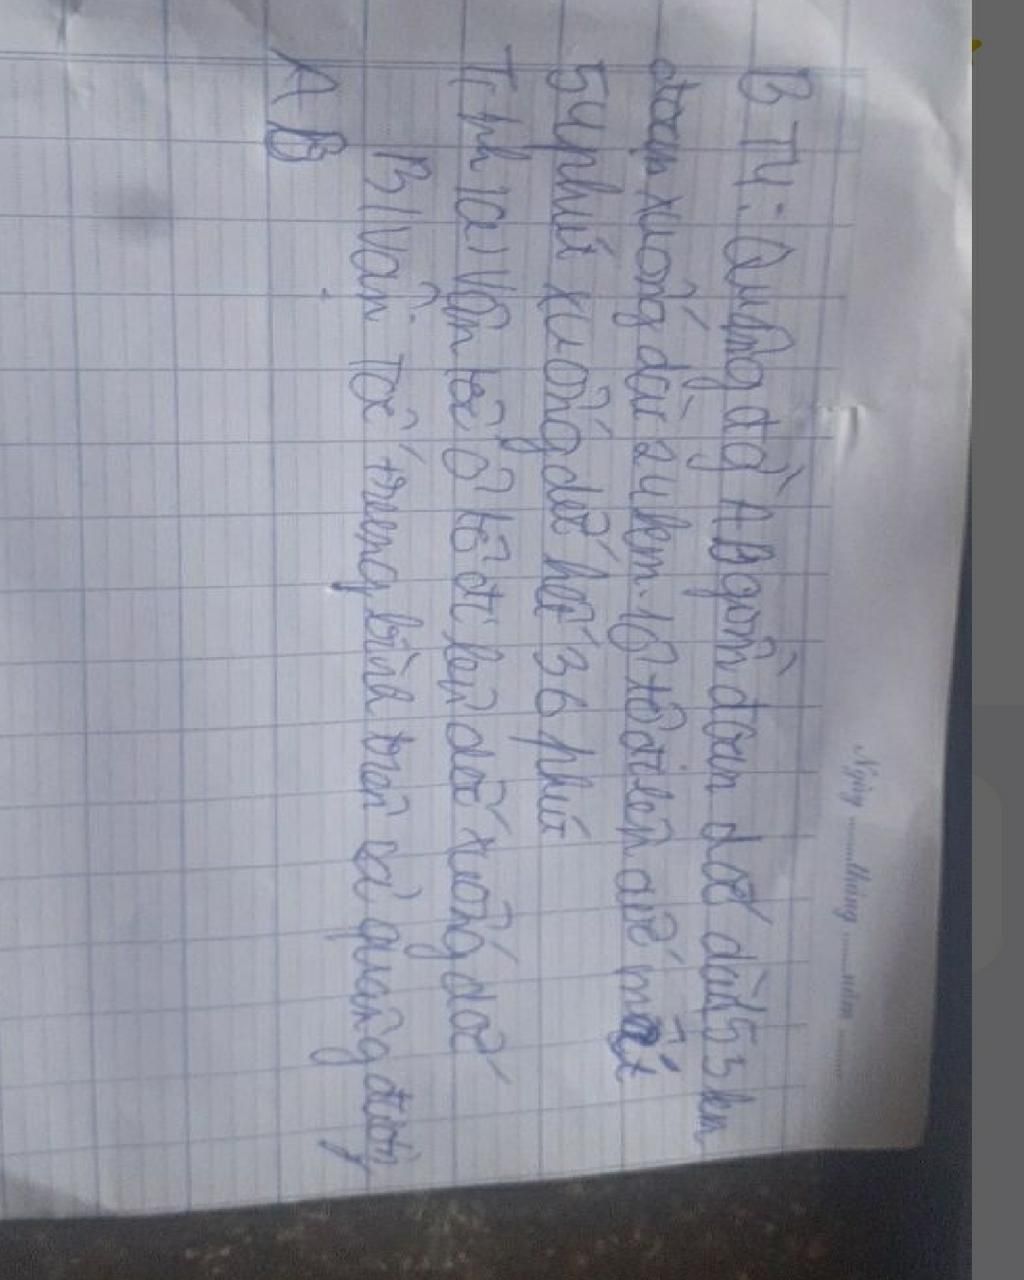 Ngày ........ tháng ........ năm ........
BT4: Quãng đờ ABgồm đoạn dốc dài 53 km
đoạn xuống dài 24km. 1ô tô đi lên dốc mất
54phút xuống dốc hết 36 phút
Tính a) Vận tốc ô tô đi lên dốc xuống dốc
B) Vận Tốc trung bình trên cả quãng đường
AB